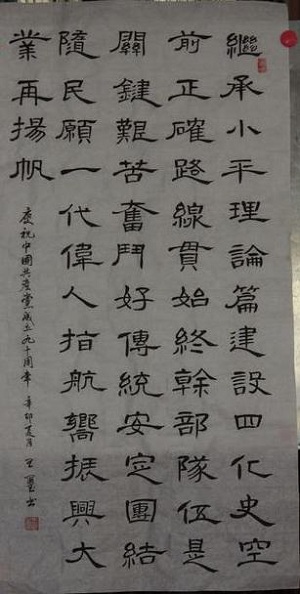 繼承小平理論篇建設四化史空
前正確路線貫始終幹部隊伍是
關鍵艱苦奮鬥好傳統安定團結
隨民願一代偉人指航嚮振興大
業再揚帆
慶祝中國共產黨成立九十周年 辛卯夏月 王